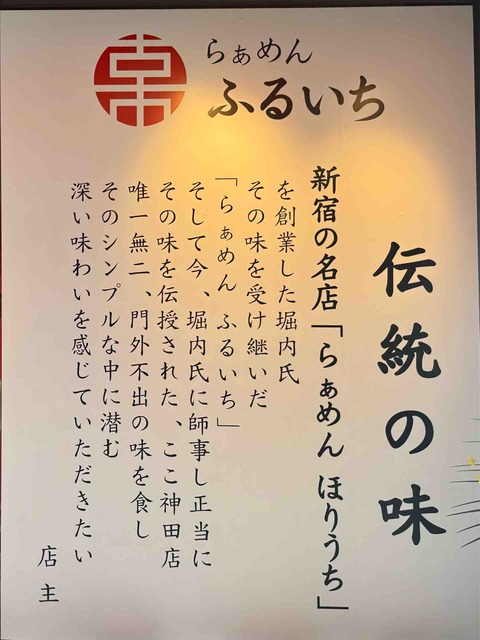 らぁめん
ふるいち
伝統の味
新宿の名店「らぁめん ほりうち」
を創業した堀内氏
その味を受け継いだ
「らぁめん ふるいち」
そして今、堀内氏に師事し正当に
その味を伝授された、ここ神田店
唯一無二、門外不出の味を食し
そのシンプルな中に潜む
深い味わいを感じていただきたい
店主